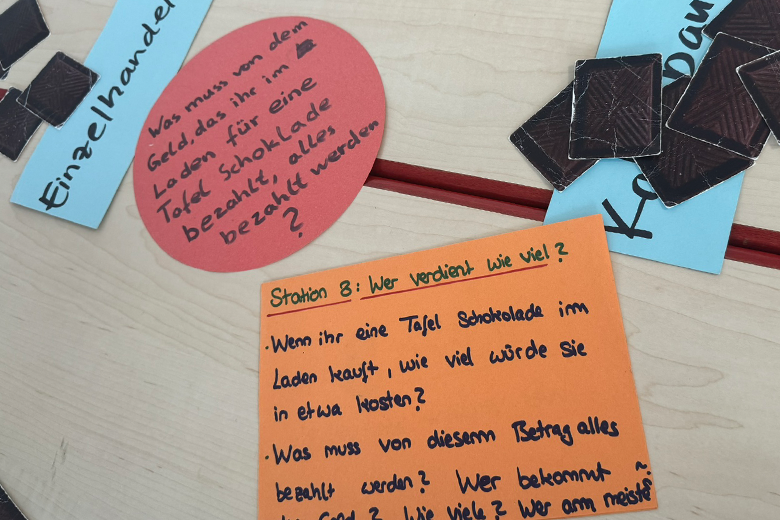 Einzelhandel
Was muss von dem
Geld, das ihr im
Laden für eine
Tafel Schoklade
bezahlt, alles
bezahlt werden
?
Ko
Station 8: Wer verdient wie viel?
· Wenn ihr eine Tafel Schokolade im
Laden kauft, wie viel würde sie
in etwa kosten?
· Was muss von diesem Betrag alles
bezahlt werden? Wer bekommt
Geld? Wie viele? Wer am meiste